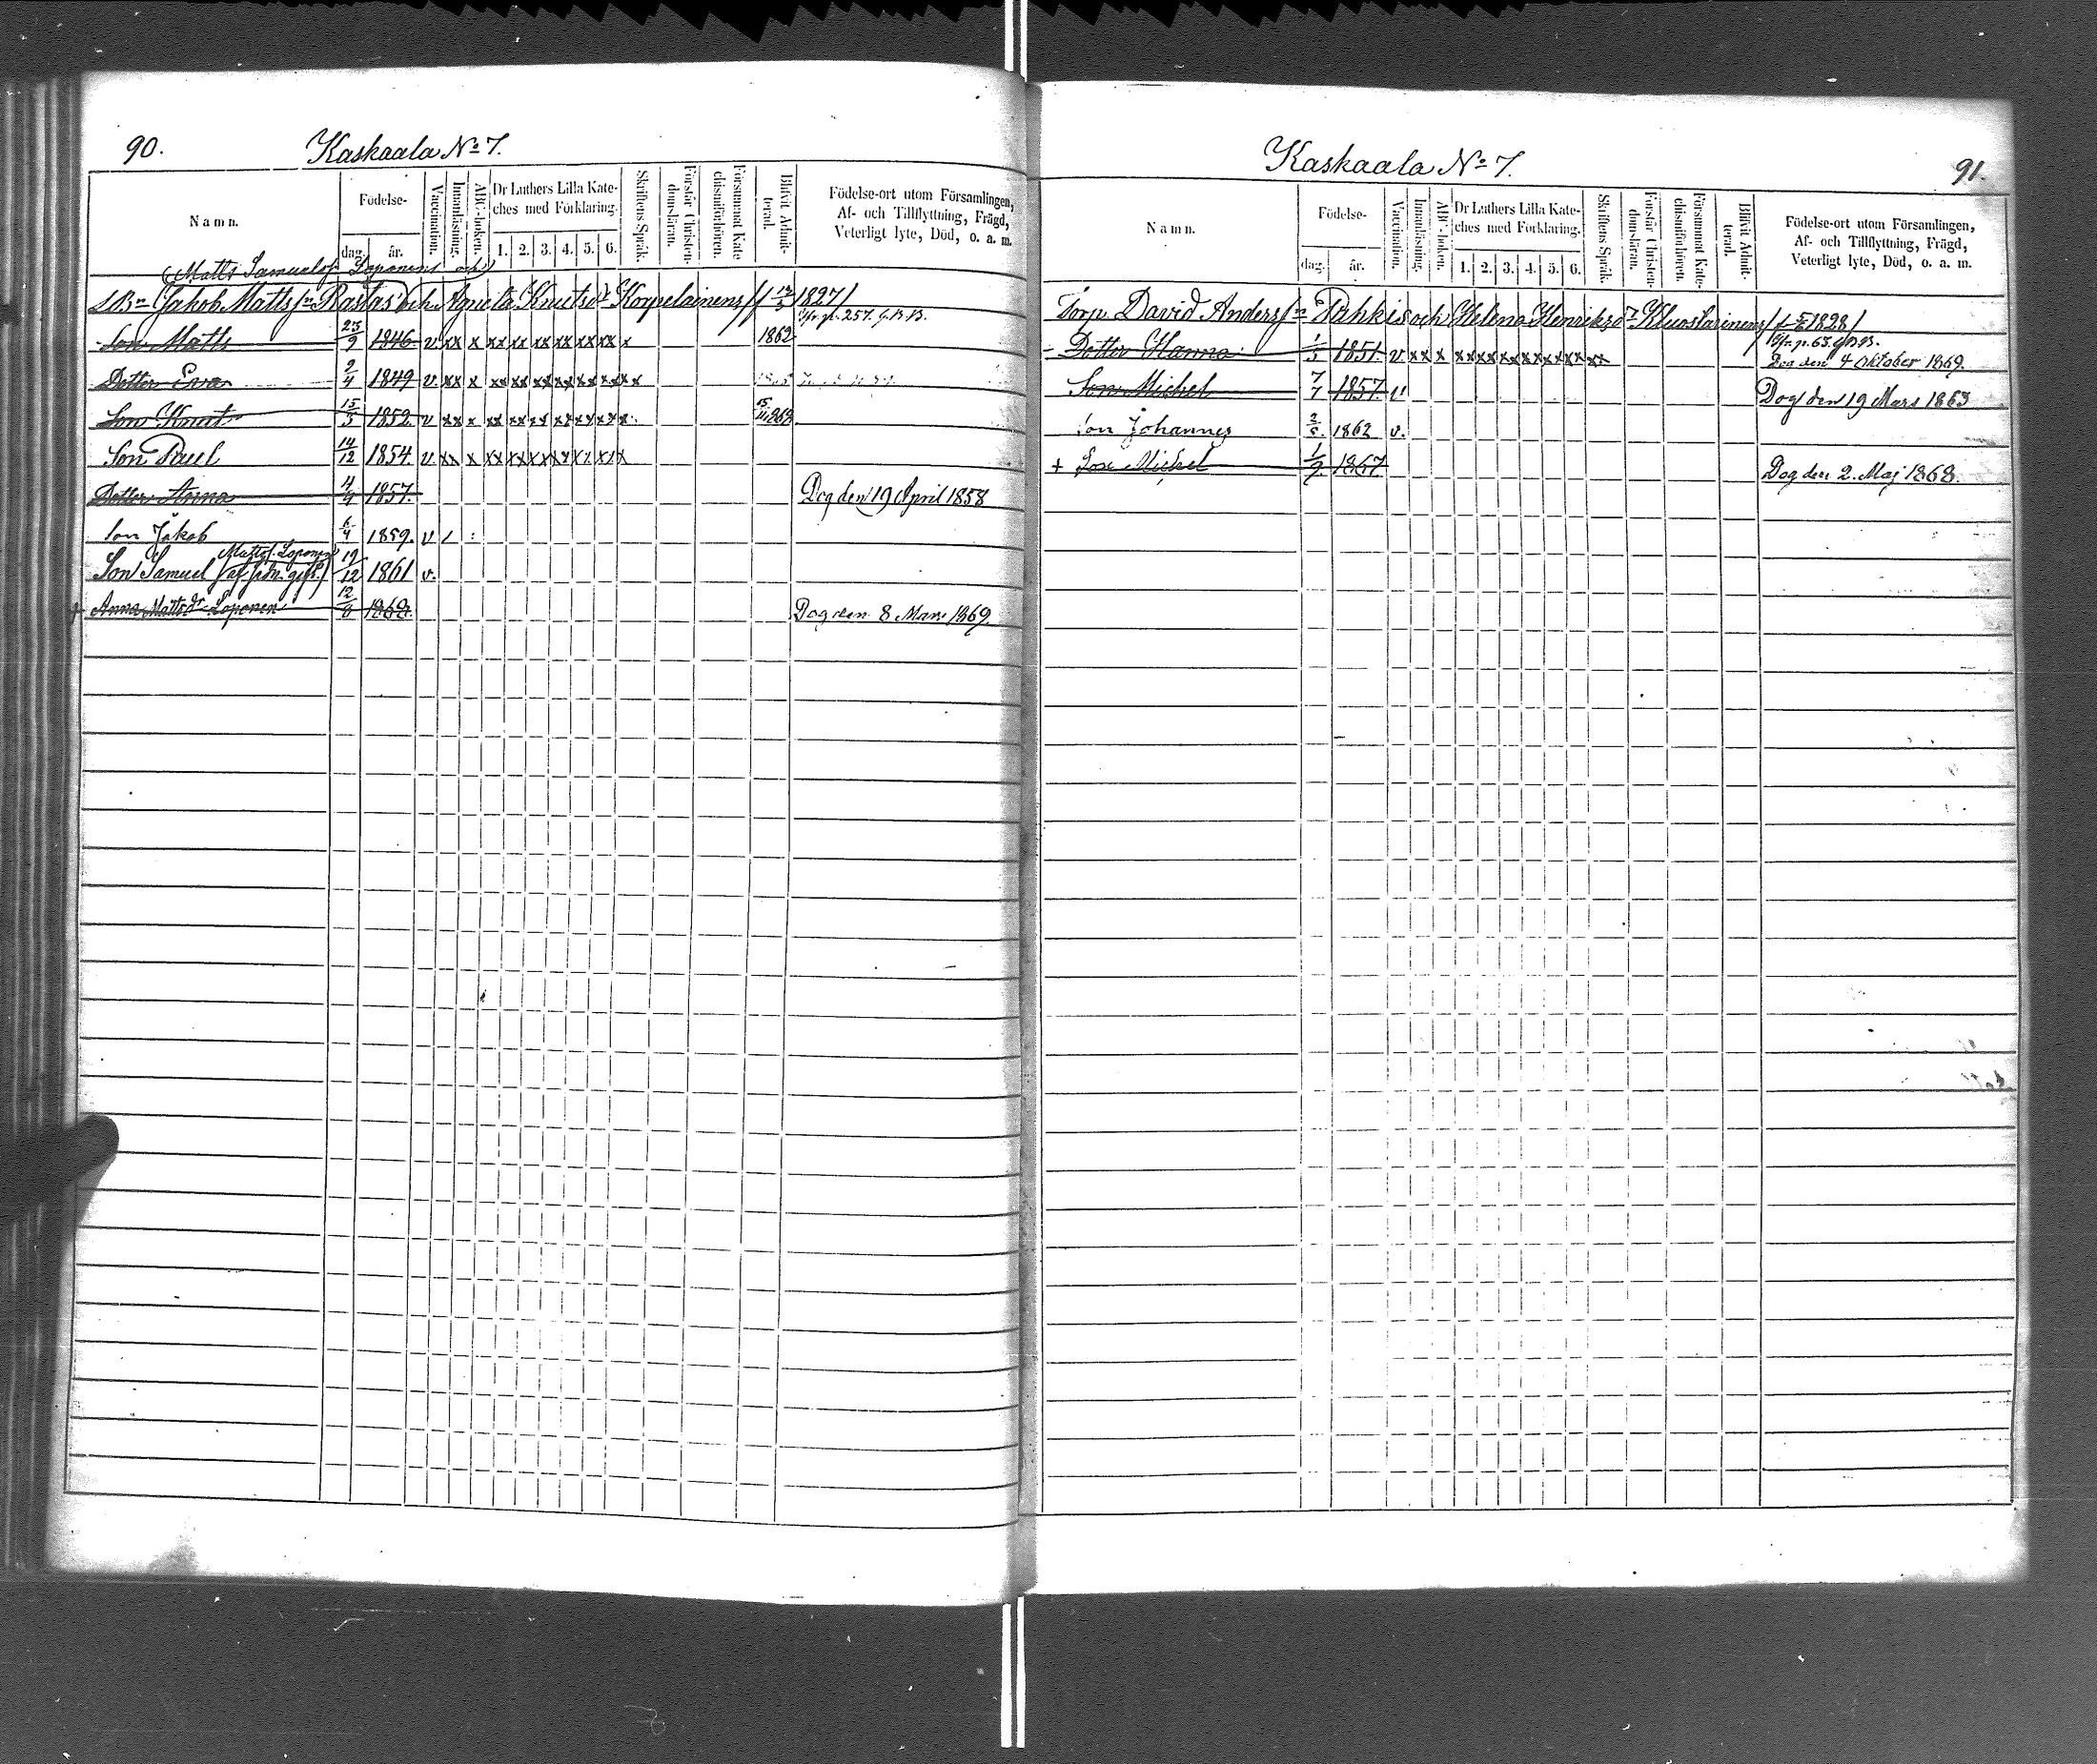 90.
Kaskaala No 7.
Namn.
Födelse-
dag. år.
Vaccination.
Innanläsning.
ABC-boken.
Dr Luthers Lilla Kate-
ches med Förklaring.
1. 2. 3. 4. 5. 6.
Skriftens Språk.
Förstår Christen-
domsläran.
Försummat Kate-
chismiförhören.
Blifvit Admit-
terad.
Födelse-ort utom Församlingen,
Af- och Tillflyttning, Frägd,
Veterligt lyte, Död, o. a. m.
(Matts Samuelss. Loponens och)
Jakob Mattss:n Rastas och Agneta Knutsd:r Korpelainens 1827/
p. 257.
Son Matts 23/9 1846 v xx x xx xx xx xx xx xx x 1862
Dotter Eva 2/4 1849 v xx x xx xx xx xx xx xx x
Son Knut 15/3 1852 v xx x xx xx xx xx xx xx x
Son Paul 14/12 1854 v xx x xx xx xx xx xx xx x
Dotter Anna 4/4 1857. Dog den 19 April 1858
Son Jakob 6/4 1859. v
Mattss. Loponen
Son Samuel 19/12 1861 v.
Anna Mattsdr Loponen 12/6 1868. Dog den 8 Mars 1869
Kaskaala No 7.
91.
Namn.
Födelse-
dag. år.
Vaccination.
Innanläsning.
ABC-boken.
Dr Luthers Lilla Kate-
ches med Förklaring.
1. 2. 3. 4. 5. 6.
Skriftens Språk.
Förstår Christen-
domsläran.
Försummat Kate-
chismiförhören.
Blifvit Admit-
terad.
Födelse-ort utom Församlingen,
Af- och Tillflyttning, Frägd,
Veterligt lyte, Död, o. a. m.
Torp. David Anderss:n Pahkis och Helena Henriksd:r 1828/
Dotter Hanna 1/5 1851. v xx x xx xx xx xx xx xx xx Dog den 4 Oktober 1869.
Son Michel 7/7 1857 v Dog den 19 Mars 1863
Son Johannes 1862 v.
+ Son Michel 1/9 1867 Dog den 2. Maj 1868.